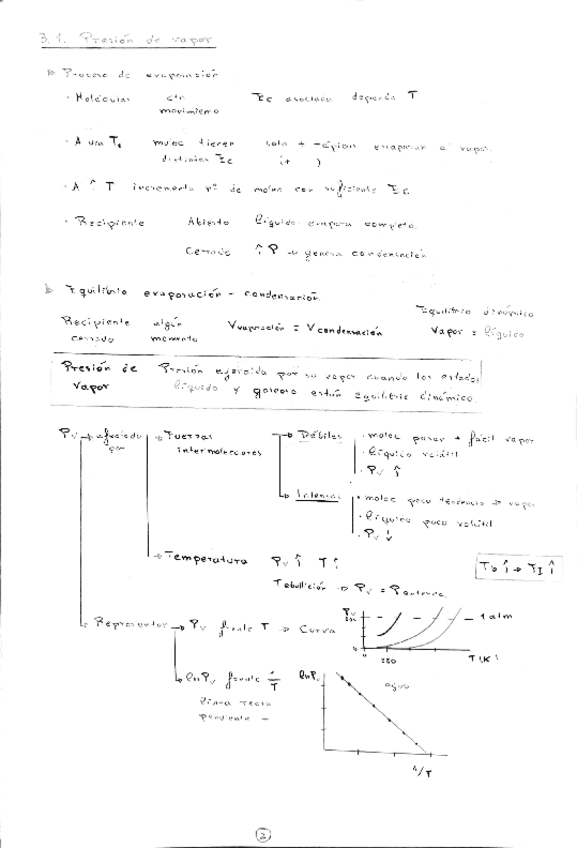 3.1. Presión de vapor
Proceso de evaporación
· Moléculas en movimiento Ec asociada depende T
· A una T, molec tienen distintas Ec solo + rápidas escapan al vapor
(+ )
· A ↑ T incrementa nº de molec con suficiente Ec
· Recipiente Abierto líquido evapora completo.
Cerrado ↑ P → genera condensación
Equilibrio evaporación - condensación
Equilibrio dinámico
Recipiente cerrado algún momento Vevaporación = Vcondensación Vapor = líquido
Presión de vapor Presión ejercida por su vapor cuando los estados
líquido y gaseoso están equilibrio dinámico.
Pv → afectado por → Fuerzas intermoleculares → Débiles · molec pasar + fácil vapor
· líquido volátil
· Pv ↑
→ Intensas · molec poca tendencia → vapor
· líquido poco volátil
· Pv ↓
→ Temperatura Pv ↑ T ↑
Tebullición → Pv = Pexterna
→ Representar → Pv frente T → Curva
Pv
1 atm
T (K)
→ ln Pv frente 1/T
línea recta
pendiente -
ln Pv
agua
1/T
2